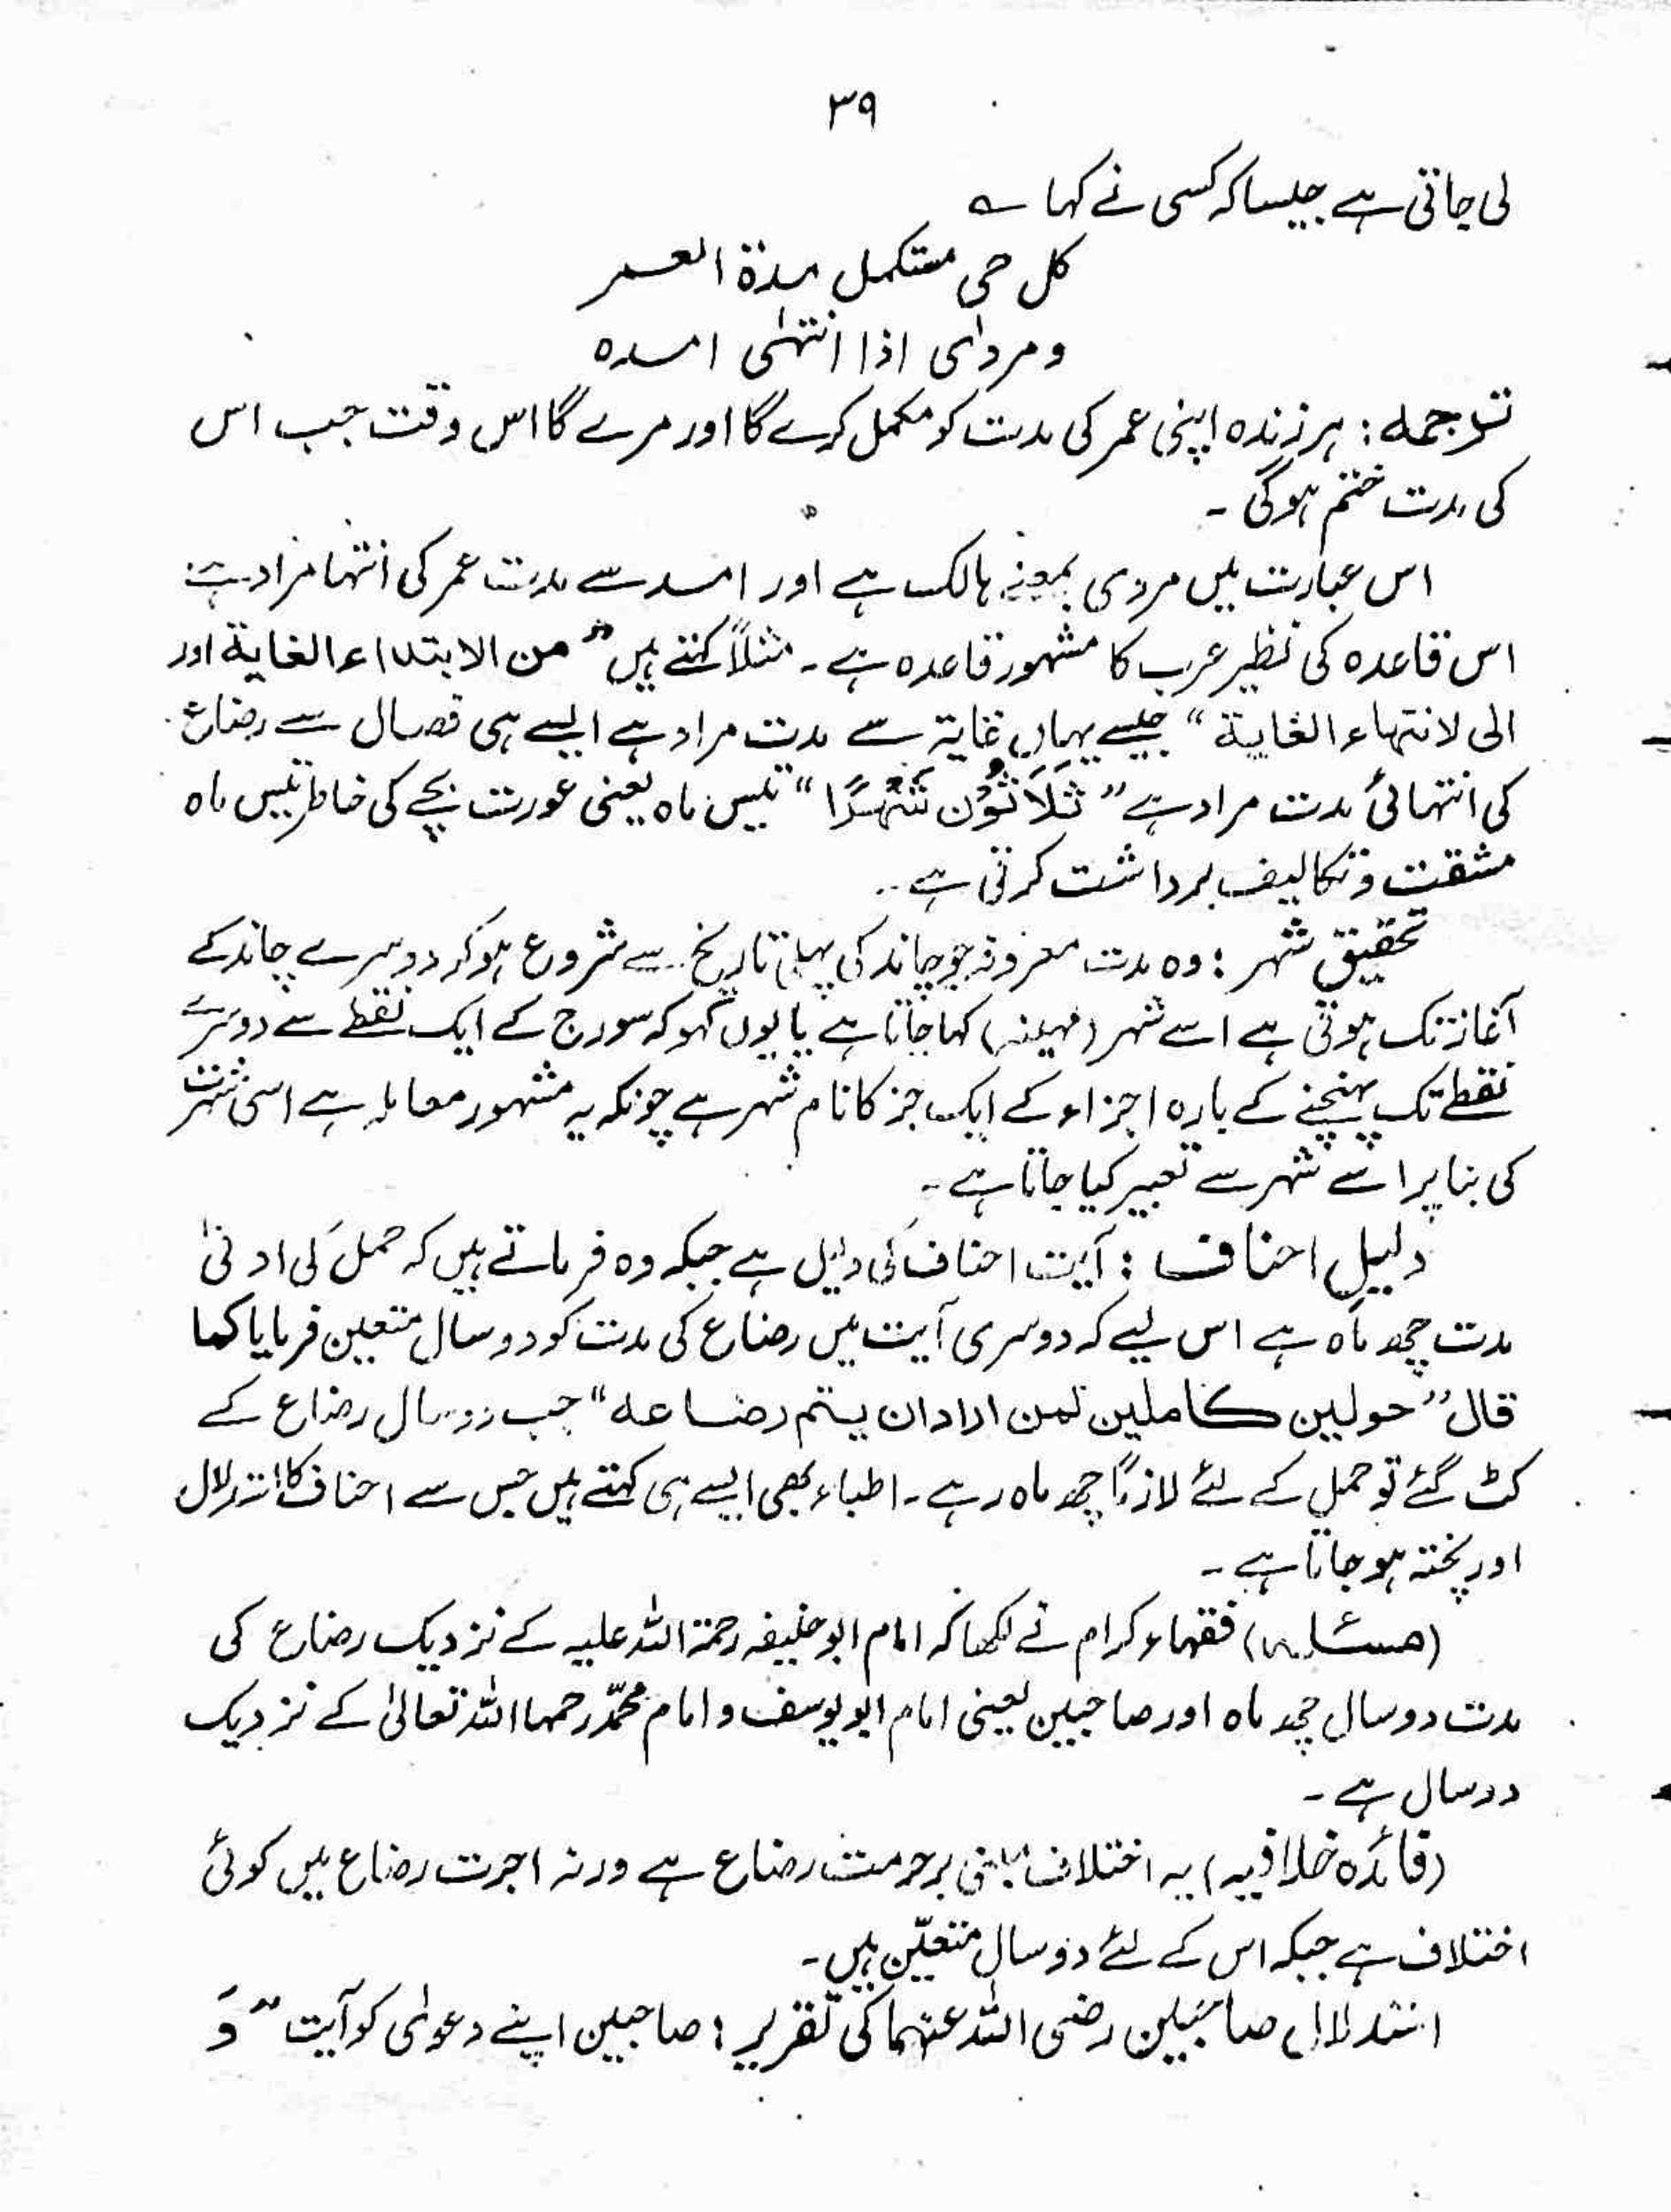 ۳۹
لی جاتی ہے جیسا کہ کسی نے کہا ؎
کل حی مستکمل مدۃ العمر
ومردای اذا انتہٰی امدہ
ترجمہ : ہر زندہ اپنی عمر کی مدت کو مکمل کرے گا اور مرے گا اس وقت جب اس
کی مدت ختم ہوگی ۔
اس عبارت میں مردی بمعنے ہالک ہے اور امد سے مدت عمر کی انتہا مراد ہے
اس قاعدہ کی نظیر عرب کا مشہور قاعدہ ہے ۔ مثلاً کہتے ہیں " من الابتداء الغایۃ اور
الی لانتہاء الغایۃ " جیسے یہاں غایۃ سے مدت مراد ہے ایسے ہی فصال سے رضاع
کی انتہائی مدت مراد ہے " ثَلَاثُوْنَ شَھْرًا " تیس ماہ یعنی عورت بچے کی خاطر تیس ماہ
مشقت و تکالیف برداشت کرتی ہے ۔
تحقیق شہر : وہ مدت معروفہ جو چاند کی پہلی تاریخ سے شروع ہو کر دوسرے چاند کے
آغاز تک ہوتی ہے اسے شہر (مہینہ) کہا جاتا ہے یا یوں کہو کہ سورج کے ایک نقطے سے دوسرے
نقطے تک پہنچنے کے بارہ اجزاء کے ایک جز کا نام شہر ہے چونکہ یہ مشہور معاملہ ہے اسی شہرت
کی بنا پر اسے شہر سے تعبیر کیا جاتا ہے ۔
دلیل احناف : آیت احناف کی دلیل ہے جبکہ وہ فرماتے ہیں کہ حمل کی ادنیٰ
مدت چھ ماہ ہے اس لیے کہ دوسری آیت میں رضاع کی مدت کو دو سال متعین فرمایا کما
قال " حولین کاملین لمن اراد ان یتم رضاعہ " جب دو سال رضاع کے
کٹ گئے تو حمل کے لئے لازماً چھ ماہ رہے ۔ اطباء بھی ایسے ہی کہتے ہیں جس سے احناف کا استدلال
اور پختہ ہو جاتا ہے ۔
(مسئلہ) فقہاء کرام نے لکھا کہ امام ابوحنیفہ رحمۃ اللہ علیہ کے نزدیک رضاع کی
مدت دو سال چھ ماہ اور صاحبین یعنی امام ابو یوسف و امام محمّد رحمہما اللہ تعالیٰ کے نزدیک
دو سال ہے ۔
(فائدہ خلافیہ) یہ اختلاف مبنی بر حرمت رضاع ہے ورنہ اجرت رضاع میں کوئی
اختلاف ہے جبکہ اس کے لئے دو سال متعیّن ہیں ۔
استدلال صاحبین رضی اللہ عنہما کی تقریر : صاحبین اپنے دعوٰی کو آیت " وَ